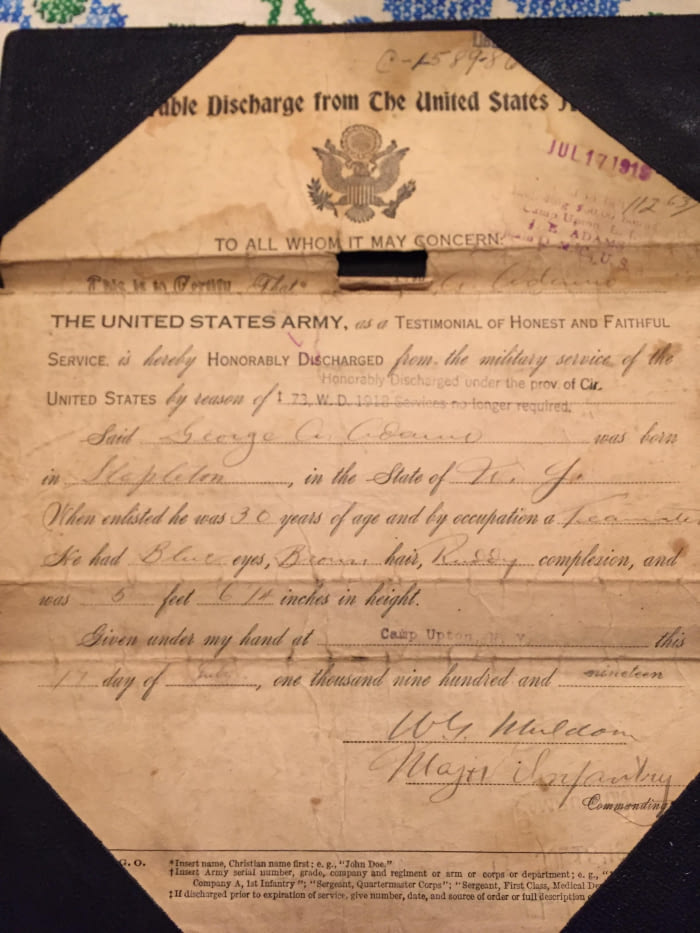 C-1589-86
able Discharge from The United States
JUL 17 1919
1263
Camp Upton, L.I.
J. E. ADAMS
U.S.
TO ALL WHOM IT MAY CONCERN:
This is to Certify, That* A. Adams
THE UNITED STATES ARMY, as a TESTIMONIAL OF HONEST AND FAITHFUL
SERVICE, is hereby HONORABLY DISCHARGED from the military service of the
Honorably Discharged under the prov. of Cir.
UNITED STATES by reason of ‡ 73, W.D. 1918 Services no longer required.
Said George A. Adams was born
in Stapleton, in the State of N. Y.
When enlisted he was 30 years of age and by occupation a
He had Blue eyes, Brown hair, Ruddy complexion, and
was 5 feet 6 1/4 inches in height.
Given under my hand at Camp Upton, N. Y. this
17 day of July, one thousand nine hundred and nineteen
W. G. Muldoon
Major Infantry
Commanding
G. O.
*Insert name, Christian name first; e. g., "John Doe."
†Insert Army serial number, grade, company and regiment or arm or corps or department; e. g., "
Company A, 1st Infantry"; "Sergeant, Quartermaster Corps"; "Sergeant, First Class, Medical De
‡If discharged prior to expiration of service, give number, date, and source of order or full description